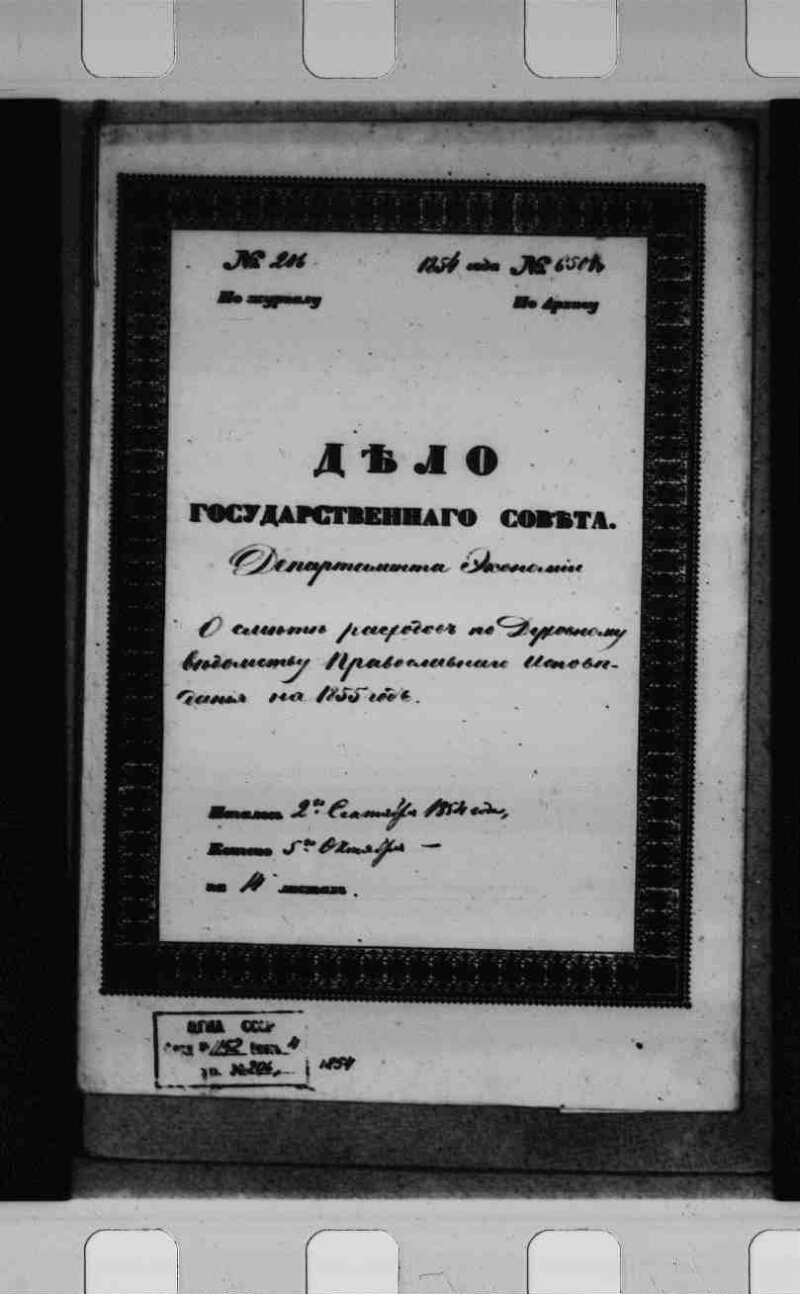 № 206 1854 года №
По журналу По Архиву
ДѢЛО
ГОСУДАРСТВЕННАГО СОВѢТА.
Департамента Экономіи
О смѣтѣ расходовъ по Духовному
вѣдомству Православнаго Исповѣ-
данія на 1855 годъ.
Началось 2го Сентября 1854 года,
Кончено 5го Октября —
на листахъ.
ЦГИА СССР
Фонд № 1152 Опись 4
№ 206, 1854